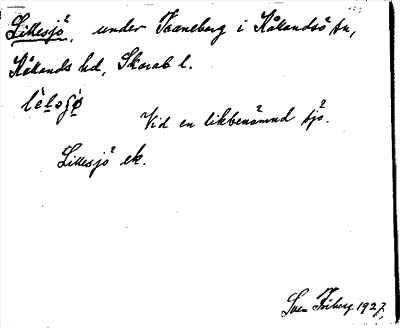 Lillesjö, under Traneberg i Kållandsö sn,
Kållands hd, Skarab. l.
Vid en likbenämnd sjö.
Lillesjö ek.
Sven Friberg 1927.